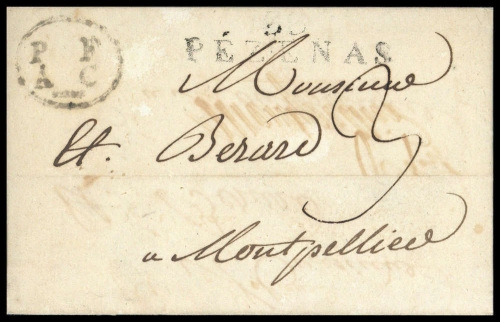 P P
A C
33
PÉZENAS
Monsieur
Et. Berard
3
a Montpellier